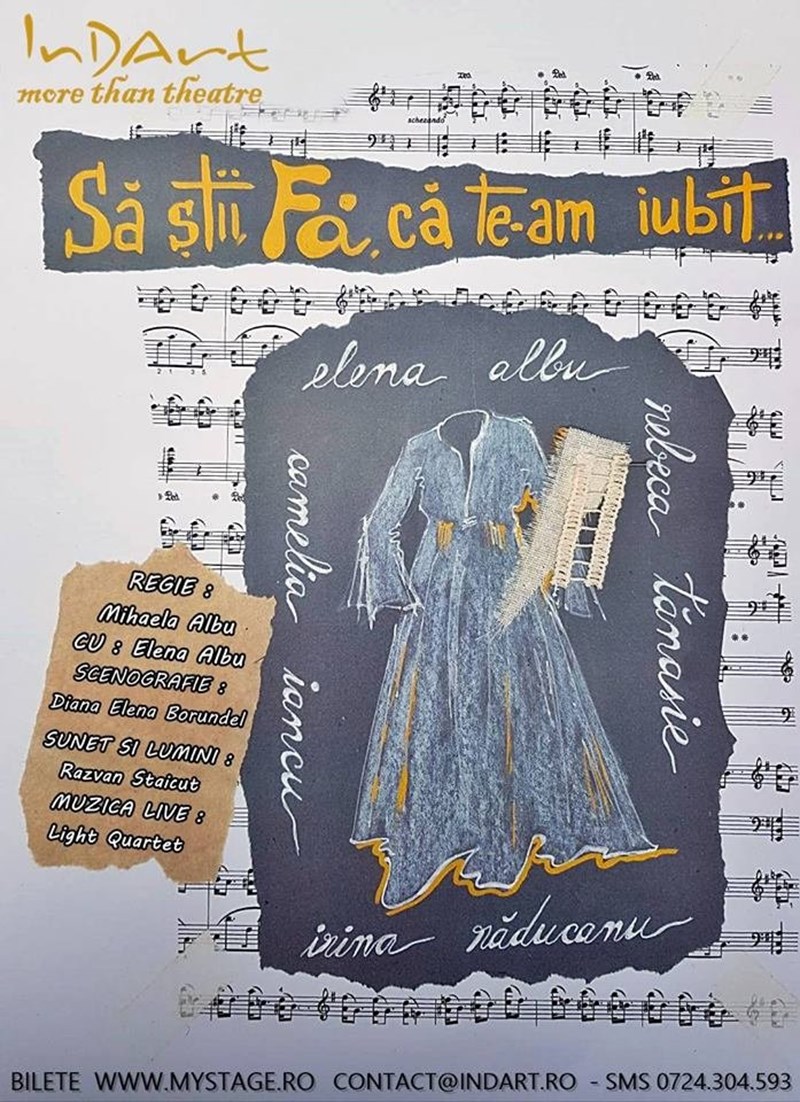 InDArt
more than theatre
scherzando
Să știi, Fă, că te-am iubit...
elena albu
rebeca tănasie
camelia iancu
irina răducanu
REGIE :
Mihaela Albu
CU : Elena Albu
SCENOGRAFIE :
Diana Elena Borundel
SUNET SI LUMINI :
Razvan Staicut
MUZICA LIVE :
Light Quartet
BILETE WWW.MYSTAGE.RO CONTACT@INDART.RO - SMS 0724.304.593